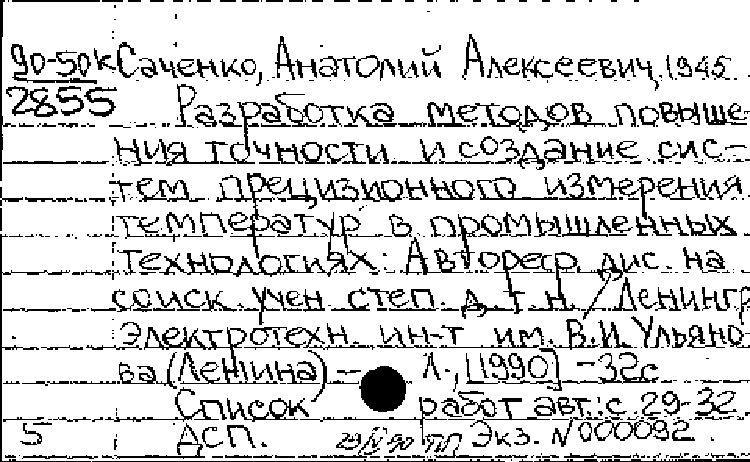 90-50к Саченко, Анатолий Алексеевич, 1945
2855 Разработка методов повыше-
ния точности и создание сис-
тем прецизионного измерения
температур в промышленных
технологиях: Автореф. дис. на
соиск. учен. степ. д. т. н. / Ленингр.
Электротехн. ин-т им. В.И. Ульяно-
ва (Ленина) -- Л., [1990] -32с
Список работ авт.: с. 29-32.
5 ДСП. 29/IV-90 Экз. N 000092.